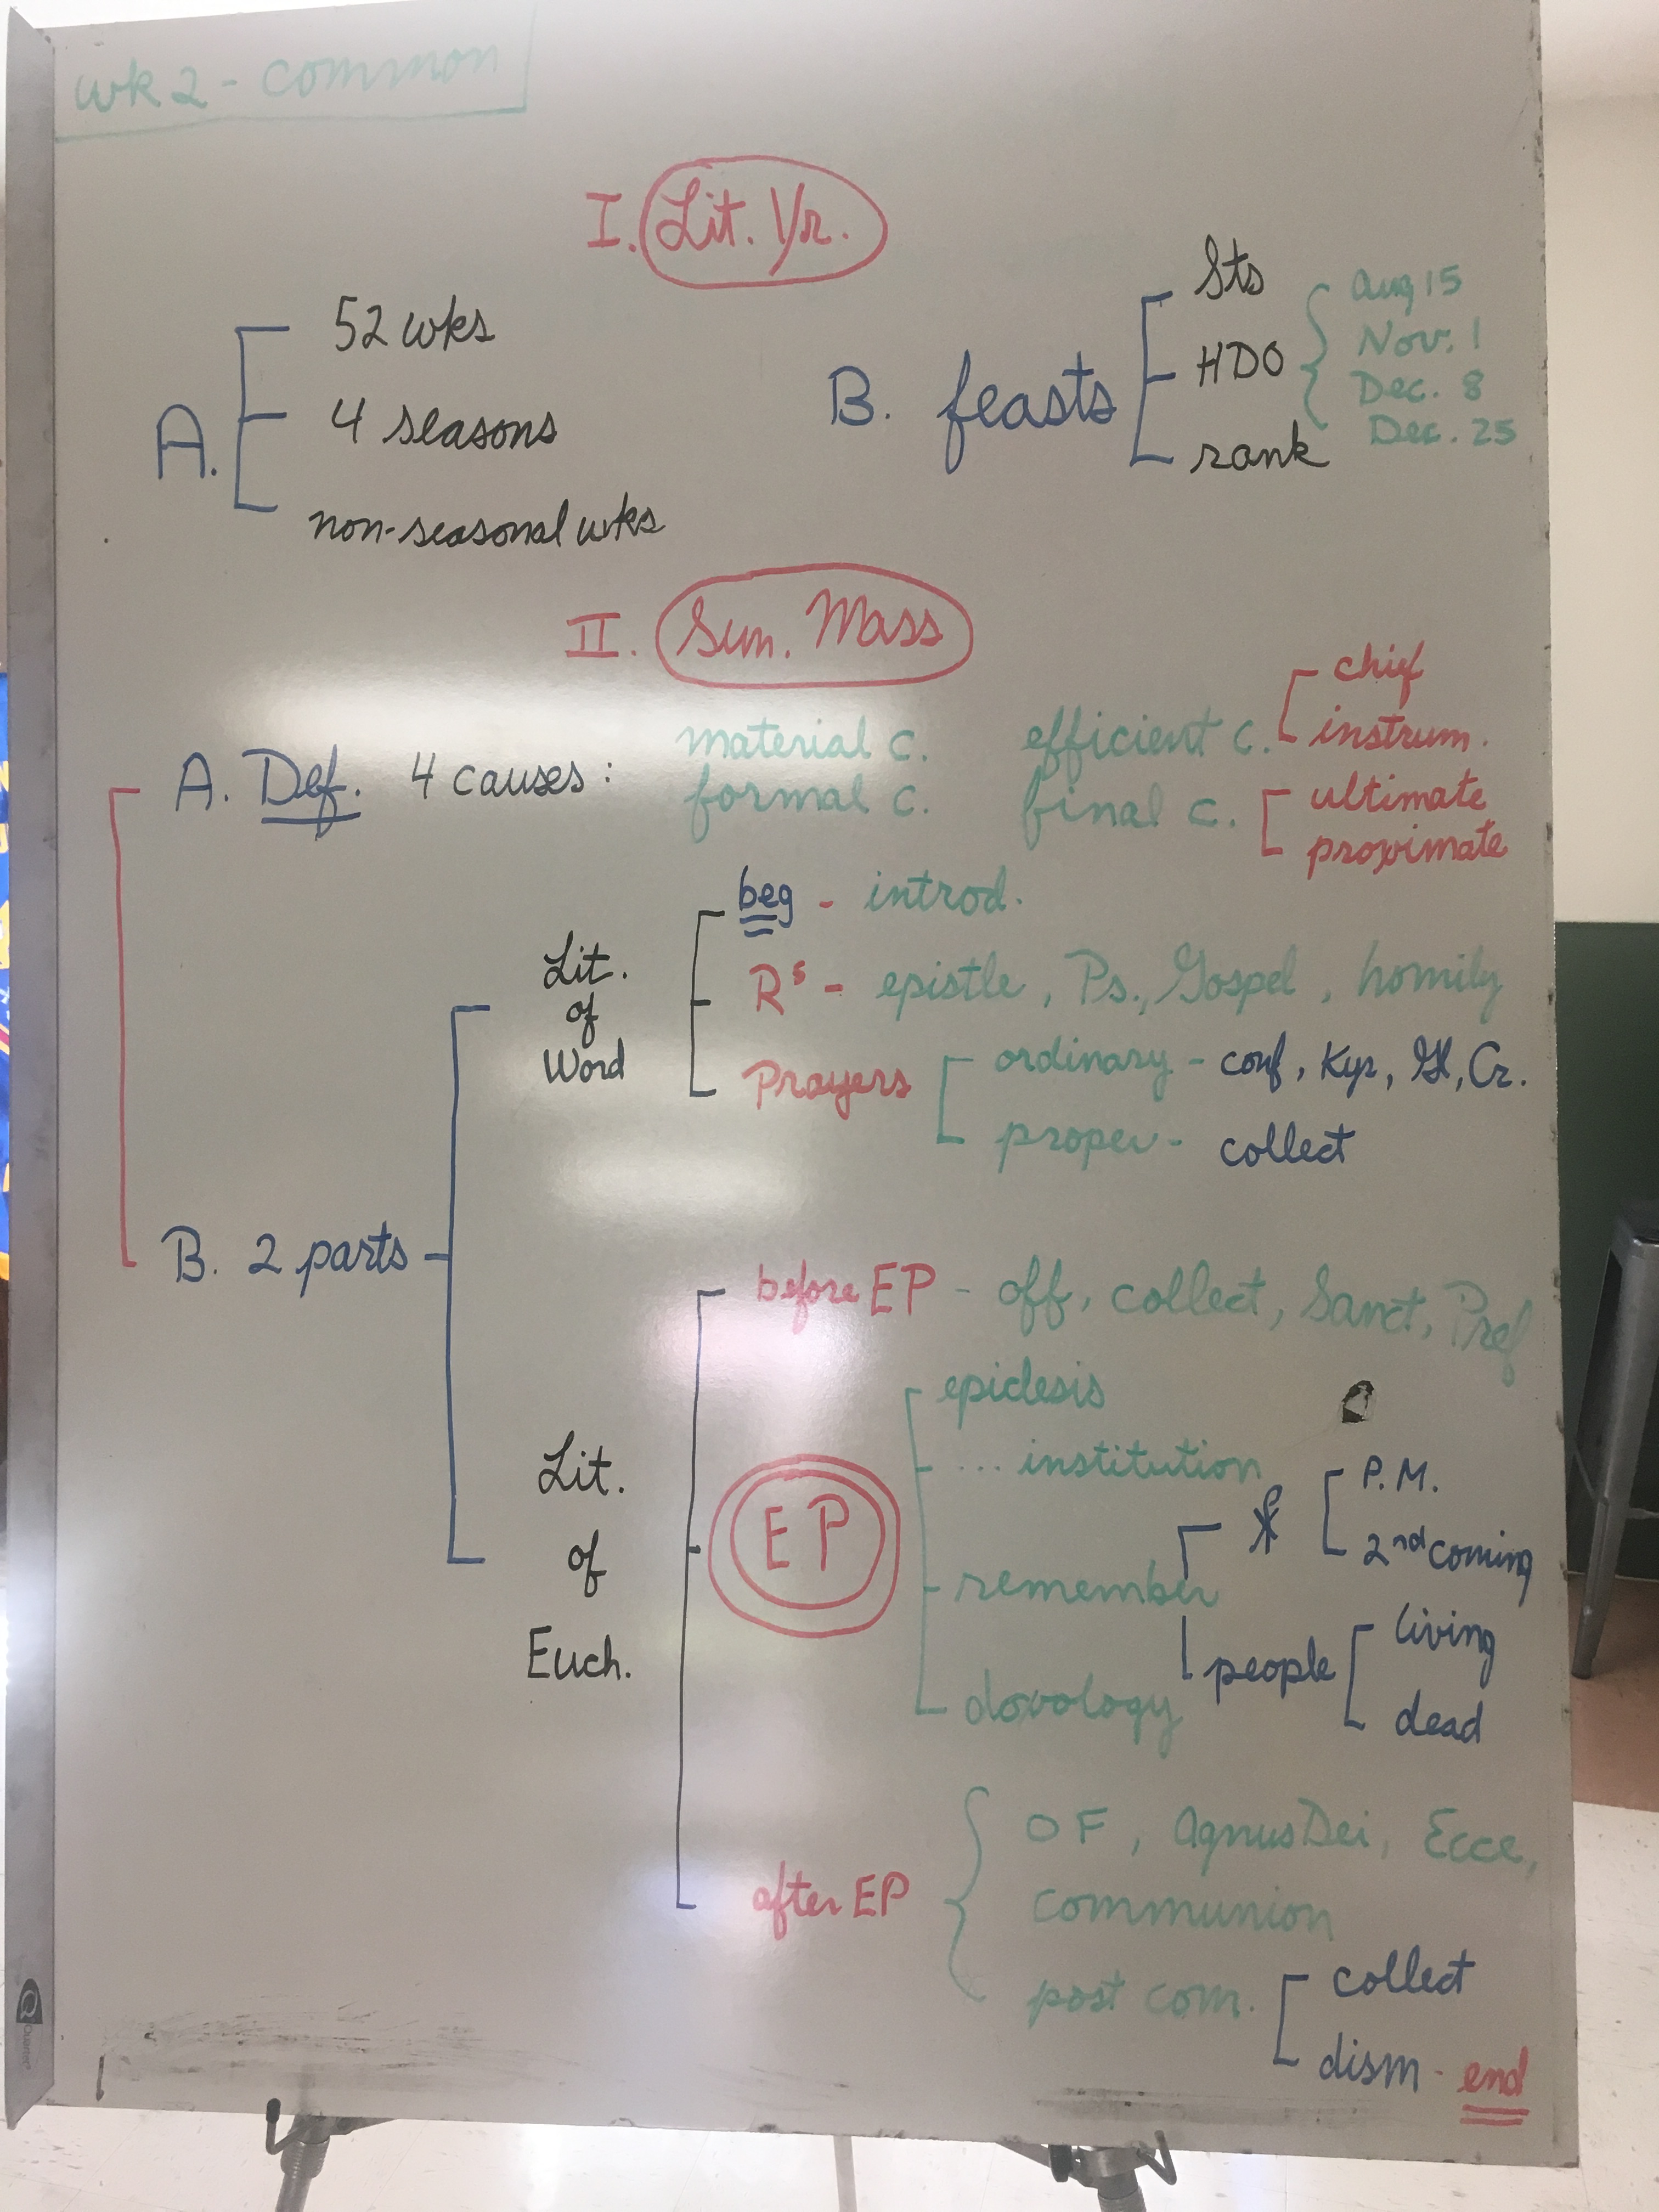 wk 2 - common
I. Lit. Yr.
A.
52 wks
4 seasons
non-seasonal wks
B. feasts
Sts
HDO
rank
Aug 15
Nov. 1
Dec. 8
Dec. 25
II. Sun. Mass
A. Def. 4 causes:
material c.
formal c.
efficient c.
chief
instrum.
final c.
ultimate
proximate
B. 2 parts
Lit.
of
Word
beg - introd.
Rs - epistle, Ps., Gospel, homily
Prayers
ordinary - conf, Kyr, Gl, Cr.
proper - collect
Lit.
of
Euch.
before EP - off, collect, Sanct, Pref
EP
epiclesis
... institution
remember
P.M.
2nd coming
people
living
dead
doxology
after EP
OF, Agnus Dei, Ecce,
communion
post com.
collect
dism - end
Quartet